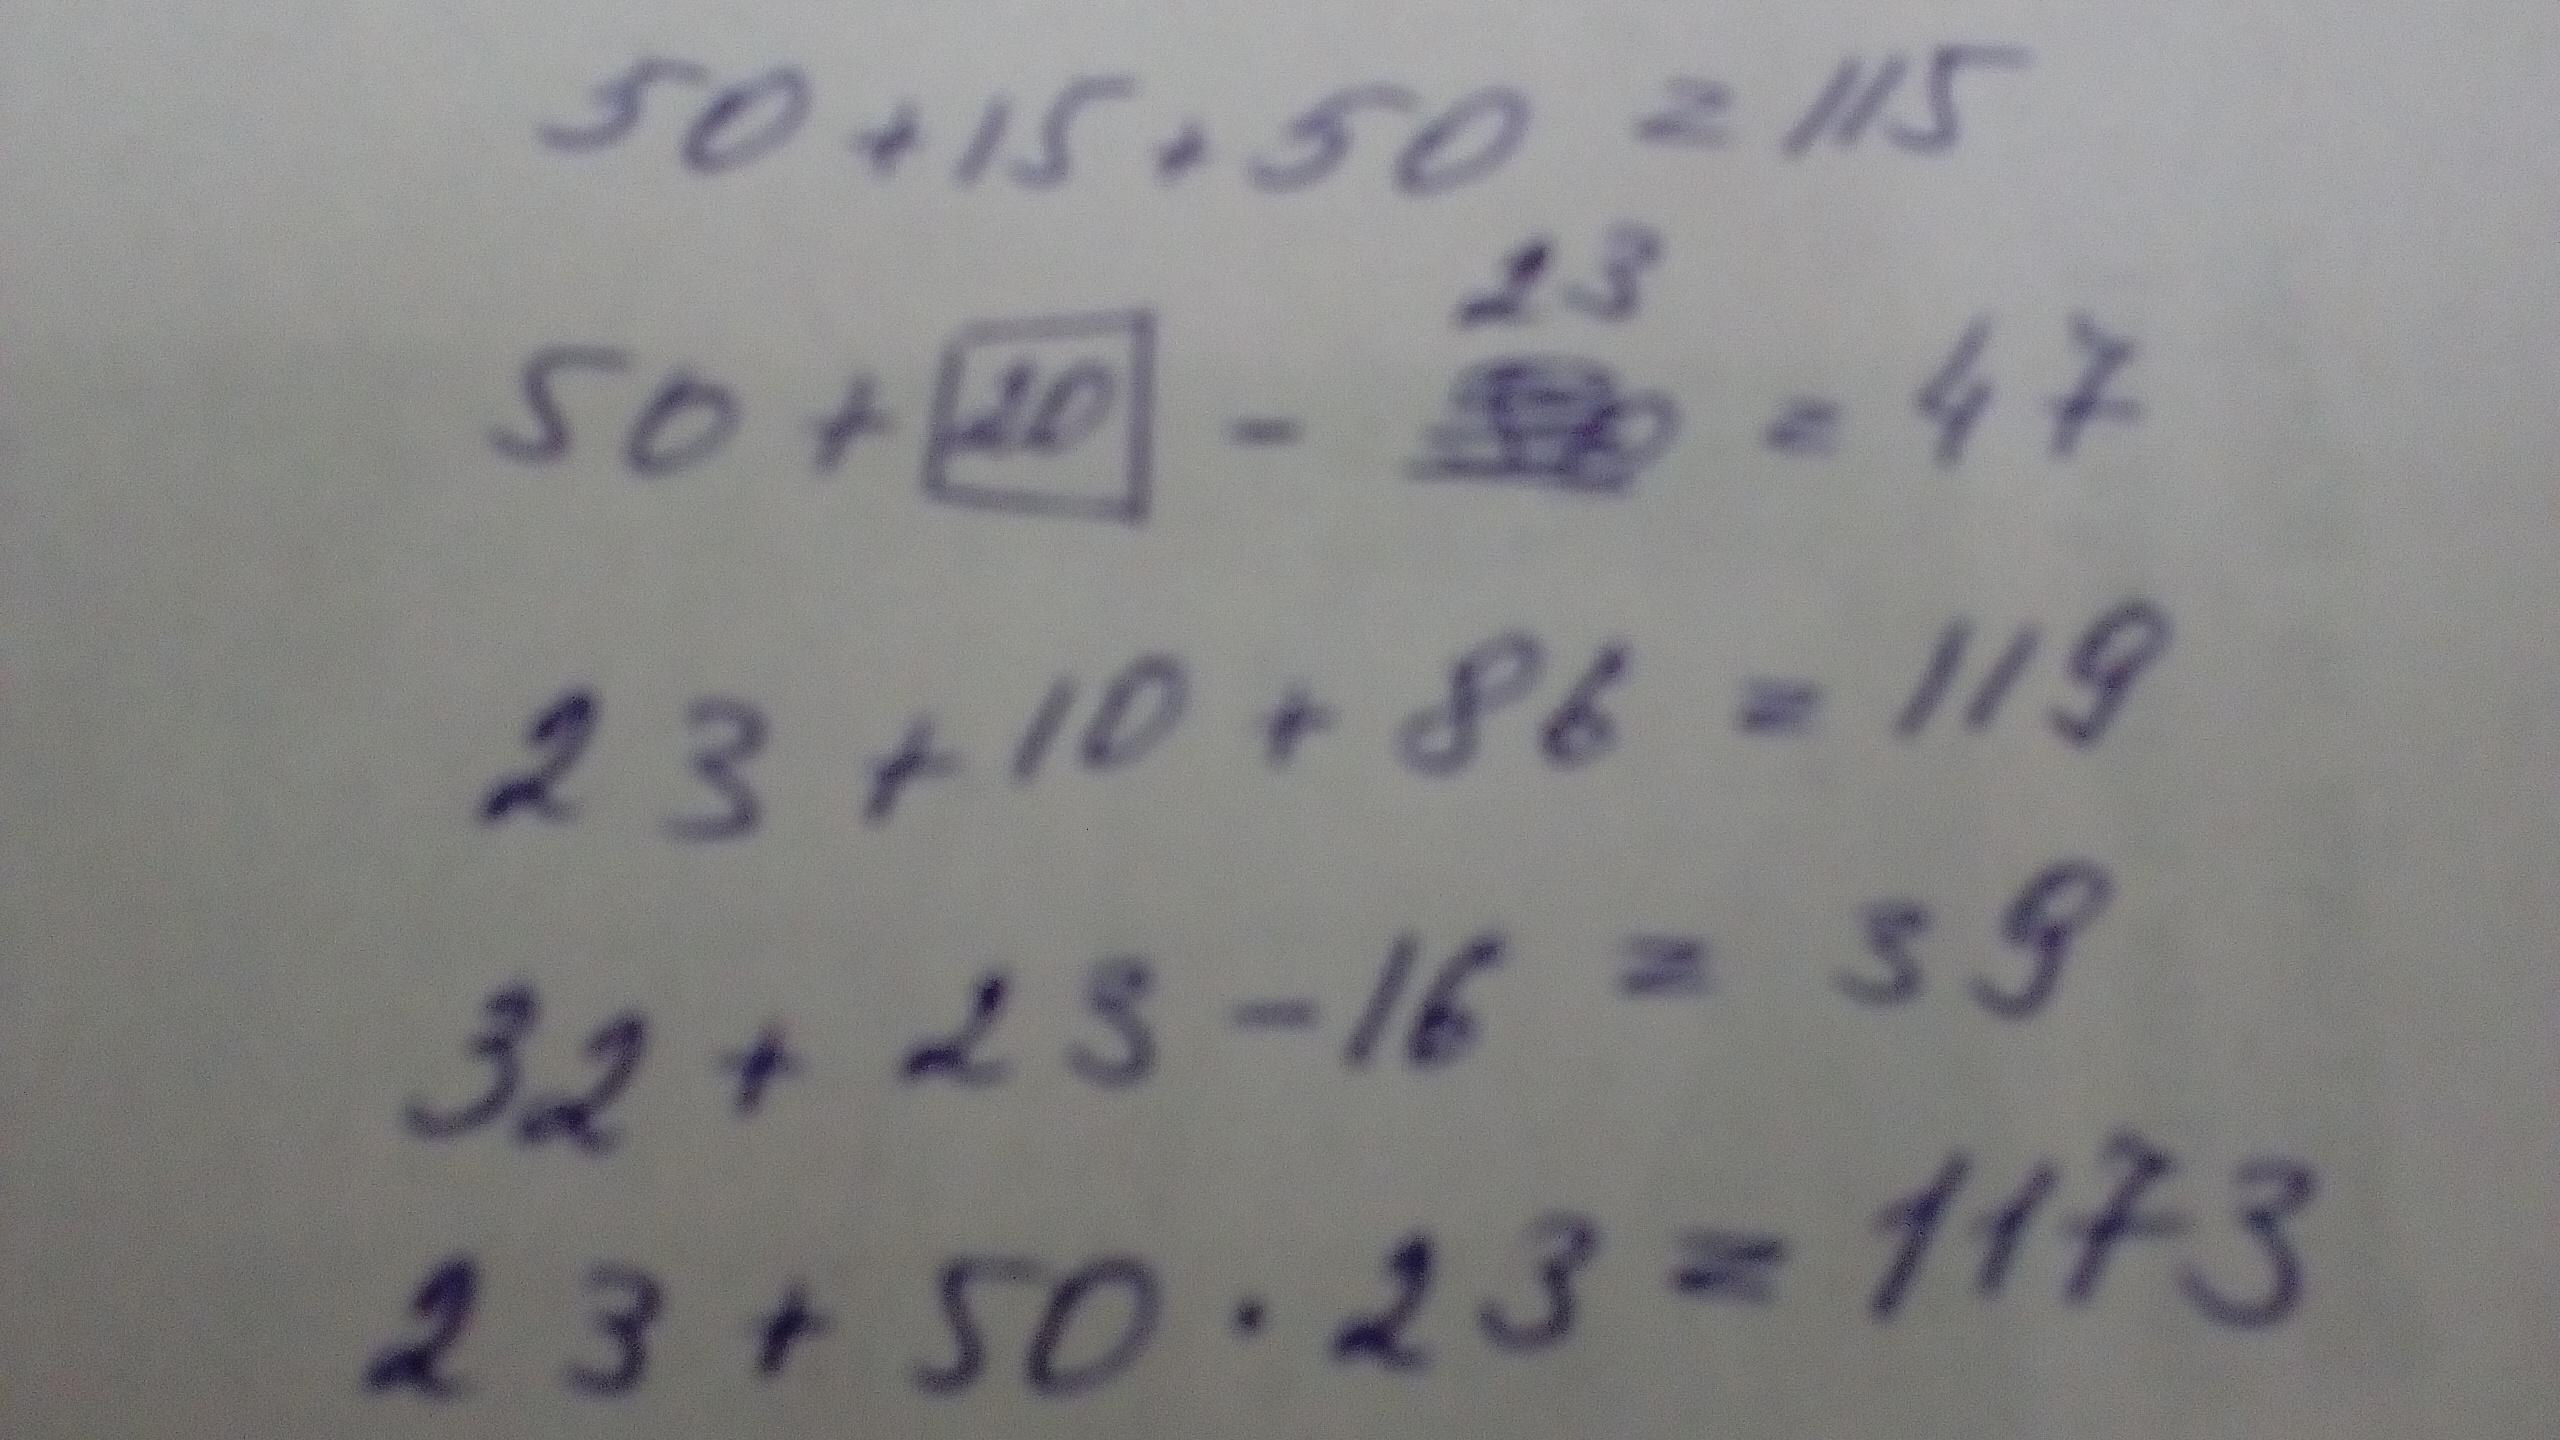 50 + 15 + 50 = 115
23
50 + 20 - = 47
23 + 10 + 86 = 119
32 + 23 - 16 = 39
23 + 50 · 23 = 1173